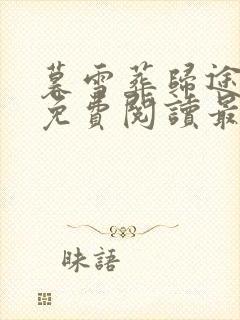 暮雪葬歸途
免費閱讀最
昧語